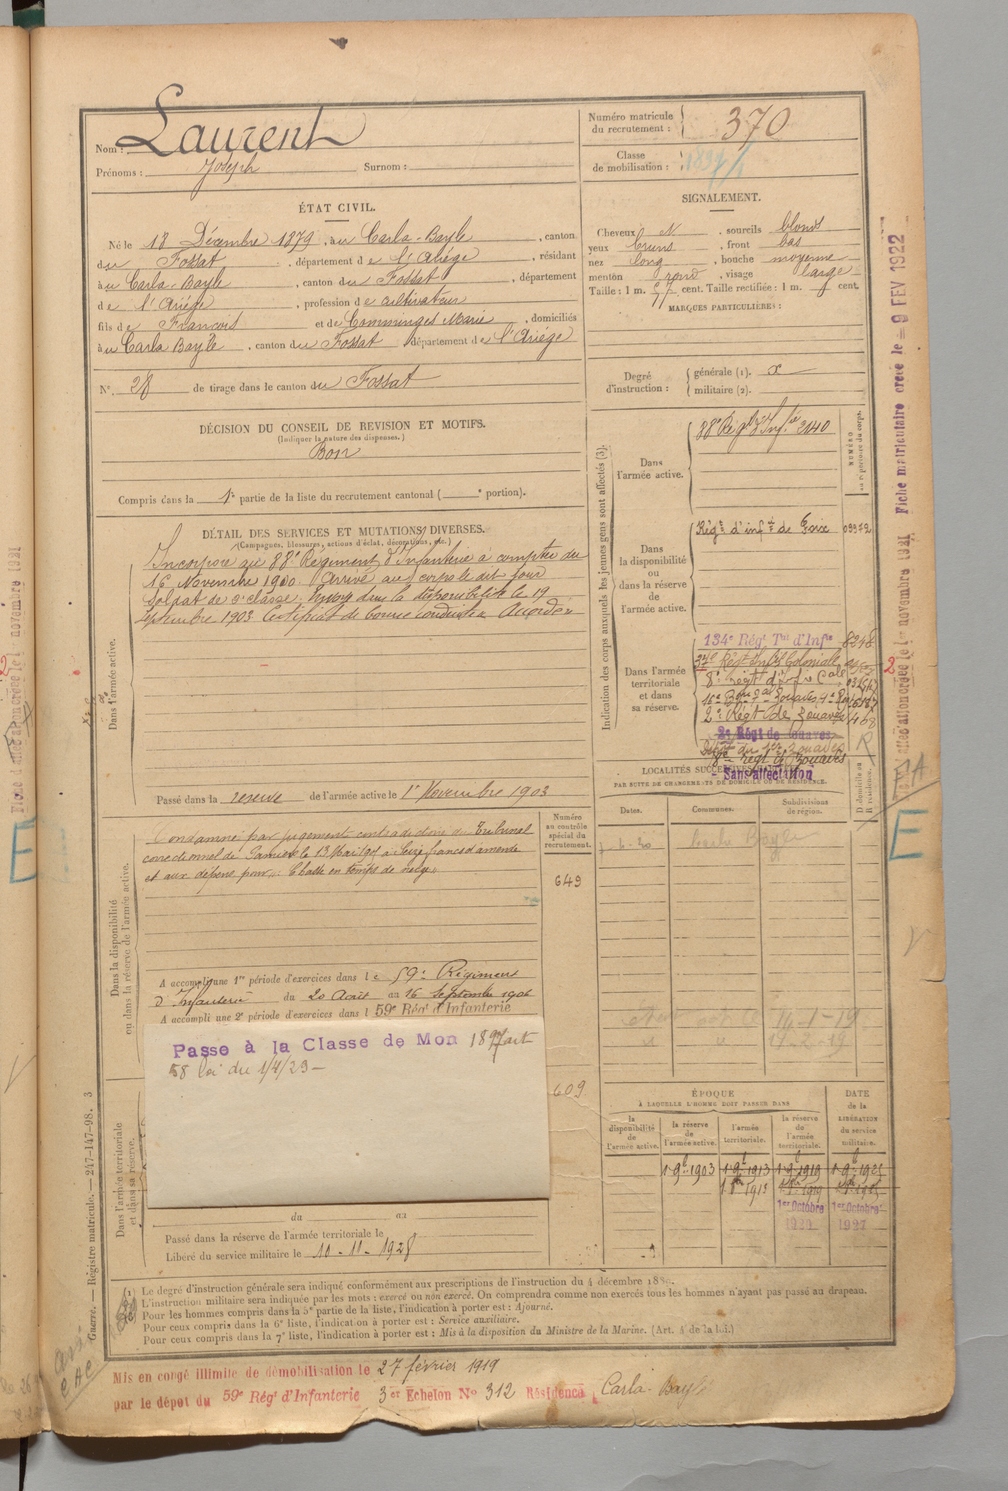 Nom : Laurent
Prénoms : Joseph Surnom :
Numéro matricule du recrutement : 370
Classe de mobilisation :
ÉTAT CIVIL.
Né le 18 Décembre 1879, à u Carla-Bayle, canton
du Fossat, département de l'Ariège, résidant
à u Carla-Bayle, canton du Fossat, département
de l'Ariége, profession de cultivateur
fils de François et de Comminges Marie, domiciliés
à u Carla Bayle, canton du Fossat, département de l'Ariége
N° 28 de tirage dans le canton du Fossat
SIGNALEMENT.
Cheveux N, sourcils blonds
yeux bruns, front bas
nez long, bouche moyenne
menton rond, visage large
Taille : 1 m. 67 cent. Taille rectifiée : 1 m. cent.
MARQUES PARTICULIÈRES :
Degré d'instruction : générale (1). x
militaire (2).
DÉCISION DU CONSEIL DE REVISION ET MOTIFS.
(Indiquer la nature des dispenses.)
Bon
Compris dans la 1re partie de la liste du recrutement cantonal ( e portion).
DÉTAIL DES SERVICES ET MUTATIONS DIVERSES.
(Campagnes, blessures, actions d'éclat, décorations, etc.)
Dans l'armée active.
Incorporé au 88e Régiment d'Infanterie à compter du
16 Novembre 1900. Arrivé au corps le dit jour
Soldat de 2e classe. Envoyé dans la disponibilité le 19
septembre 1903 Certificat de bonne conduite Accordé
Passé dans la réserve de l'armée active le 1er Novembre 1903
Indication des corps auxquels les jeunes gens sont affectés (3).
NUMÉRO au répertoire du corps.
Dans l'armée active.
88e Régt d'Infie 2140
Dans la disponibilité ou dans la réserve de l'armée active.
Régt d'infie de Foix
Dans l'armée territoriale et dans sa réserve.
134e Régt Tal d'Infie 8248
37e Régt Infie Coloniale
8e régt d'infie Cale
2e Régt de Zouaves
2e Régt de Zouaves
Dépôt du 1er Zouaves
8e régt de Zouaves
Sans affectation
LOCALITÉS SUCCESSIVES
PAR SUITE DE CHANGEMENTS DE DOMICILE OU DE RÉSIDENCE.
Dates. Communes. Subdivisions de région. D domicile ou R résidence.
Carla Bayle
Dans la disponibilité ou dans la réserve de l'armée active.
Condamné par jugement contradictoire du Tribunal
correctionnel de Pamiers le 13 Mai 1905 à Seize francs d'amende
et aux dépens pour : Chasse en temps de neige
Numéro au contrôle spécial du recrutement.
649
A accompli une 1re période d'exercices dans le 59e Régiment
d'Infanterie du 20 Août au 16 Septembre 1906
A accompli une 2e période d'exercices dans l 59e Régt d'Infanterie
Passé à la Classe de Mon 1897 art
58 loi du 1/4/23
609
Dans l'armée territoriale et dans sa réserve.
du au
Passé dans la réserve de l'armée territoriale le
Libéré du service militaire le 10-11-1928
ÉPOQUE
À LAQUELLE L'HOMME DOIT PASSER DANS
DATE de la LIBÉRATION du service militaire.
la disponibilité de l'armée active. la réserve de l'armée active. l'armée territoriale. la réserve de l'armée territoriale.
1 9bre 1903 1 9bre 1913 1 9bre 1919 1 9bre 1925
1er Octobre 1er Octobre
(1) Le degré d'instruction générale sera indiqué conformément aux prescriptions de l'instruction du 4 décembre 1889.
L'instruction militaire sera indiquée par les mots : exercé ou non exercé. On comprendra comme non exercés tous les hommes n'ayant pas passé au drapeau.
Pour les hommes compris dans la 5e partie de la liste, l'indication à porter est : Ajourné.
Pour ceux compris dans la 6e liste, l'indication à porter est : Service auxiliaire.
Pour ceux compris dans la 7e liste, l'indication à porter est : Mis à la disposition du Ministre de la Marine. (Art. 4 de la loi.)
Mis en congé illimité de démobilisation le 27 février 1919
par le dépôt du 59e Régt d'Infanterie 3er Echelon No 312 Résidence Carla-Bayle
Guerre. — Registre matricule. — 247-147-98. 3
Fiche matriculaire créée le 9 FEV 1922
Fiche d'affectation créée le 1er novembre 1921
2
E
E